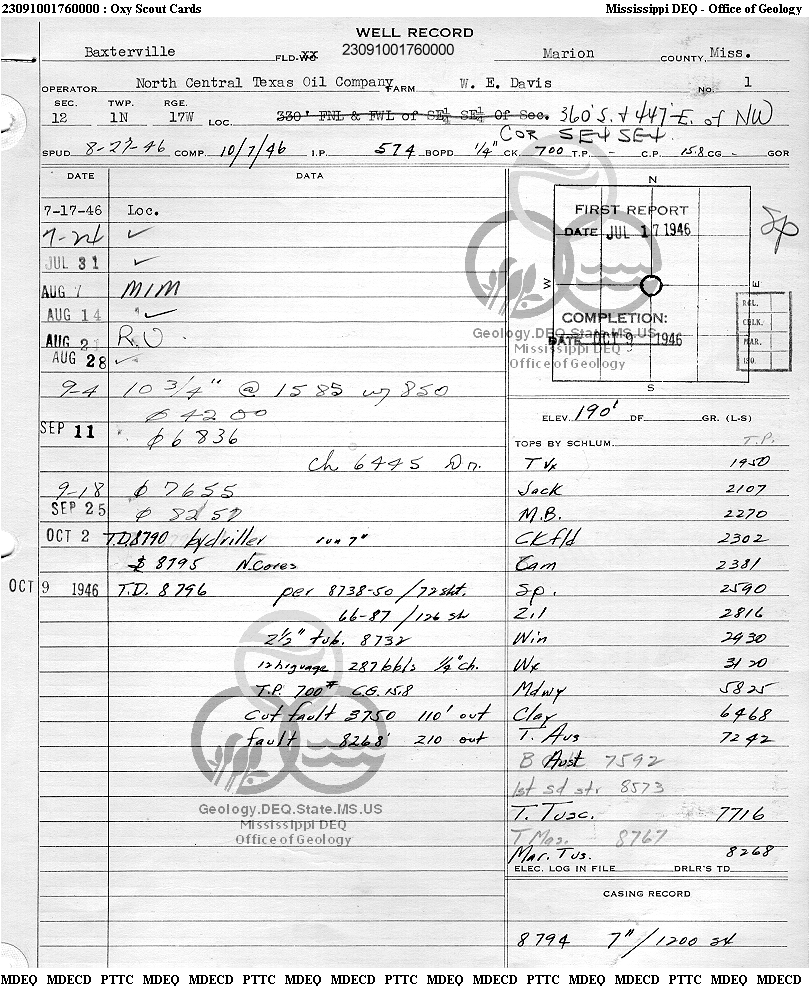 23091001760000 : Oxy Scout Cards Mississippi DEQ - Office of Geology
WELL RECORD
Baxterville FLD-WC xx 23091001760000 Marion COUNTY, Miss.
OPERATOR North Central Texas Oil Company FARM W. E. Davis NO. 1
SEC. TWP. RGE.
12 1N 17W LOC. 330' FNL & FWL of SE¼ SE¼ Of Sec. 360' S. & 447' E. of NW
COR SE4 SE4.
SPUD 8-27-46 COMP. 10/7/46 I.P. 574 BOPD ¼" CK. 700 T.P. - C.P. 15.8 CG - GOR
DATE DATA
7-17-46 Loc.
7-24 ✓
JUL 31 ✓
AUG 7 MIM
AUG 14 " ✓
AUG 21 R.U.
AUG 28 ✓
9-4 10 3/4" @ 1585 w/ 850
∅ 4200
SEP 11 ∅ 6836
Ch 6445 Dn.
9-18 ∅ 7655
SEP 25 ∅ 8257
OCT 2 T.D. 8790 by driller run 7"
$ 8795 N.Cores
OCT 9 1946 T.D. 8796 per 8738-50 / 72 sht.
66-87 / 126 sh
2½" tub. 8732
12 hr guage 287 bbls ¼" ch.
T.P. 700# C.G. 15.8
Cut fault 3750 110' out
fault 8268' 210 out
N
FIRST REPORT
DATE JUL 17 1946
W E
COMPLETION:
DATE OCT 9 1946
S
Sp
REL.
CHLK.
MAR.
ISO.
ELEV. 190' DF GR. (L-S)
TOPS BY SCHLUM. T.P.
T Vx 1950
Jack 2107
M.B. 2270
CKfld 2302
Cam 2381
Sp. 2590
Zil 2816
Win 2930
Wx 3120
Mdwy 5825
Clay 6468
T. Aus 7242
B Aust 7592
1st sd str 8573
T. Tusc. 7716
T Mas. 8767
Mar. Tus. 8268
ELEC. LOG IN FILE DRLR'S TD
CASING RECORD
8794 7" / 1200 sx
Geology.DEQ.State.MS.US
Mississippi DEQ
Office of Geology
Geology.DEQ.State.MS.US
Mississippi DEQ
Office of Geology
MDEQ MDECD PTTC MDEQ MDECD PTTC MDEQ MDECD PTTC MDEQ MDECD PTTC MDEQ MDECD PTTC MDEQ MDECD